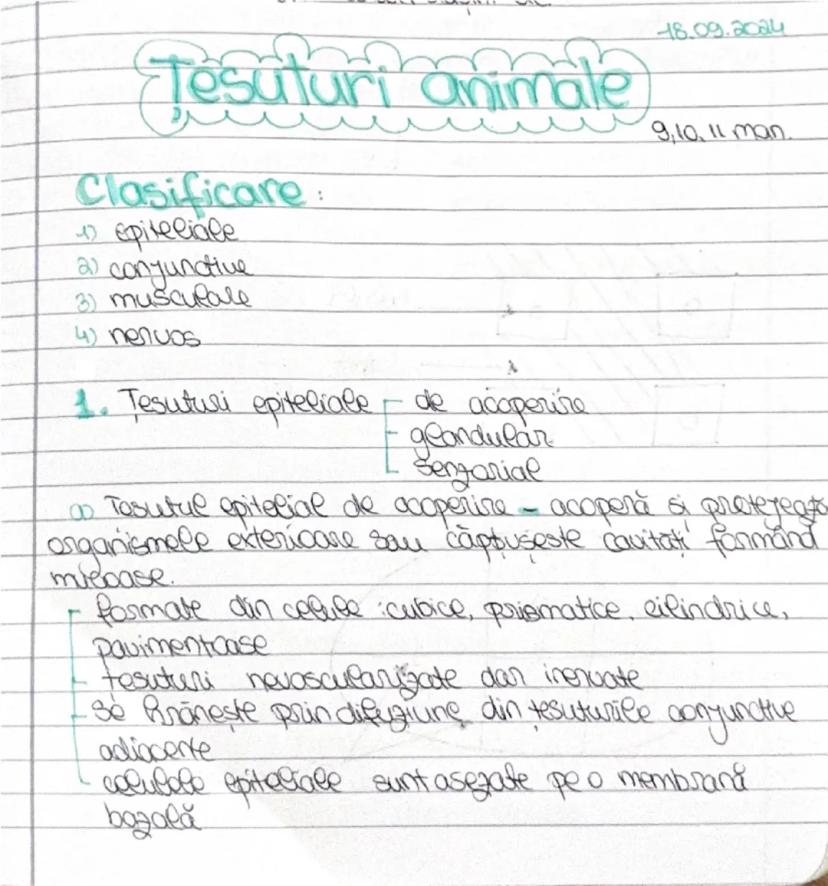 18.09.2024
Țesuturi animale
9,10,11 man.
Clasificare:
1) epiteliale
2) conjunctive
3) musculare
4) nervos
1. Țesuturi epiteliale - de acoperire
- glandular
- senzorial
a) Țesutul epitelial de acoperire - acoperă si protejează
organismele exterioare sau căptușește cavități formând
mucoase.
- formate din celule: cubice, prismatice, cilindrice,
pavimentoase
- țesuturi nevascularizate dar inervate
- se hrănește prin difuziune din țesuturile conjunctive
adiacente
- celulele epiteliale sunt asezate pe o membrană
bazală